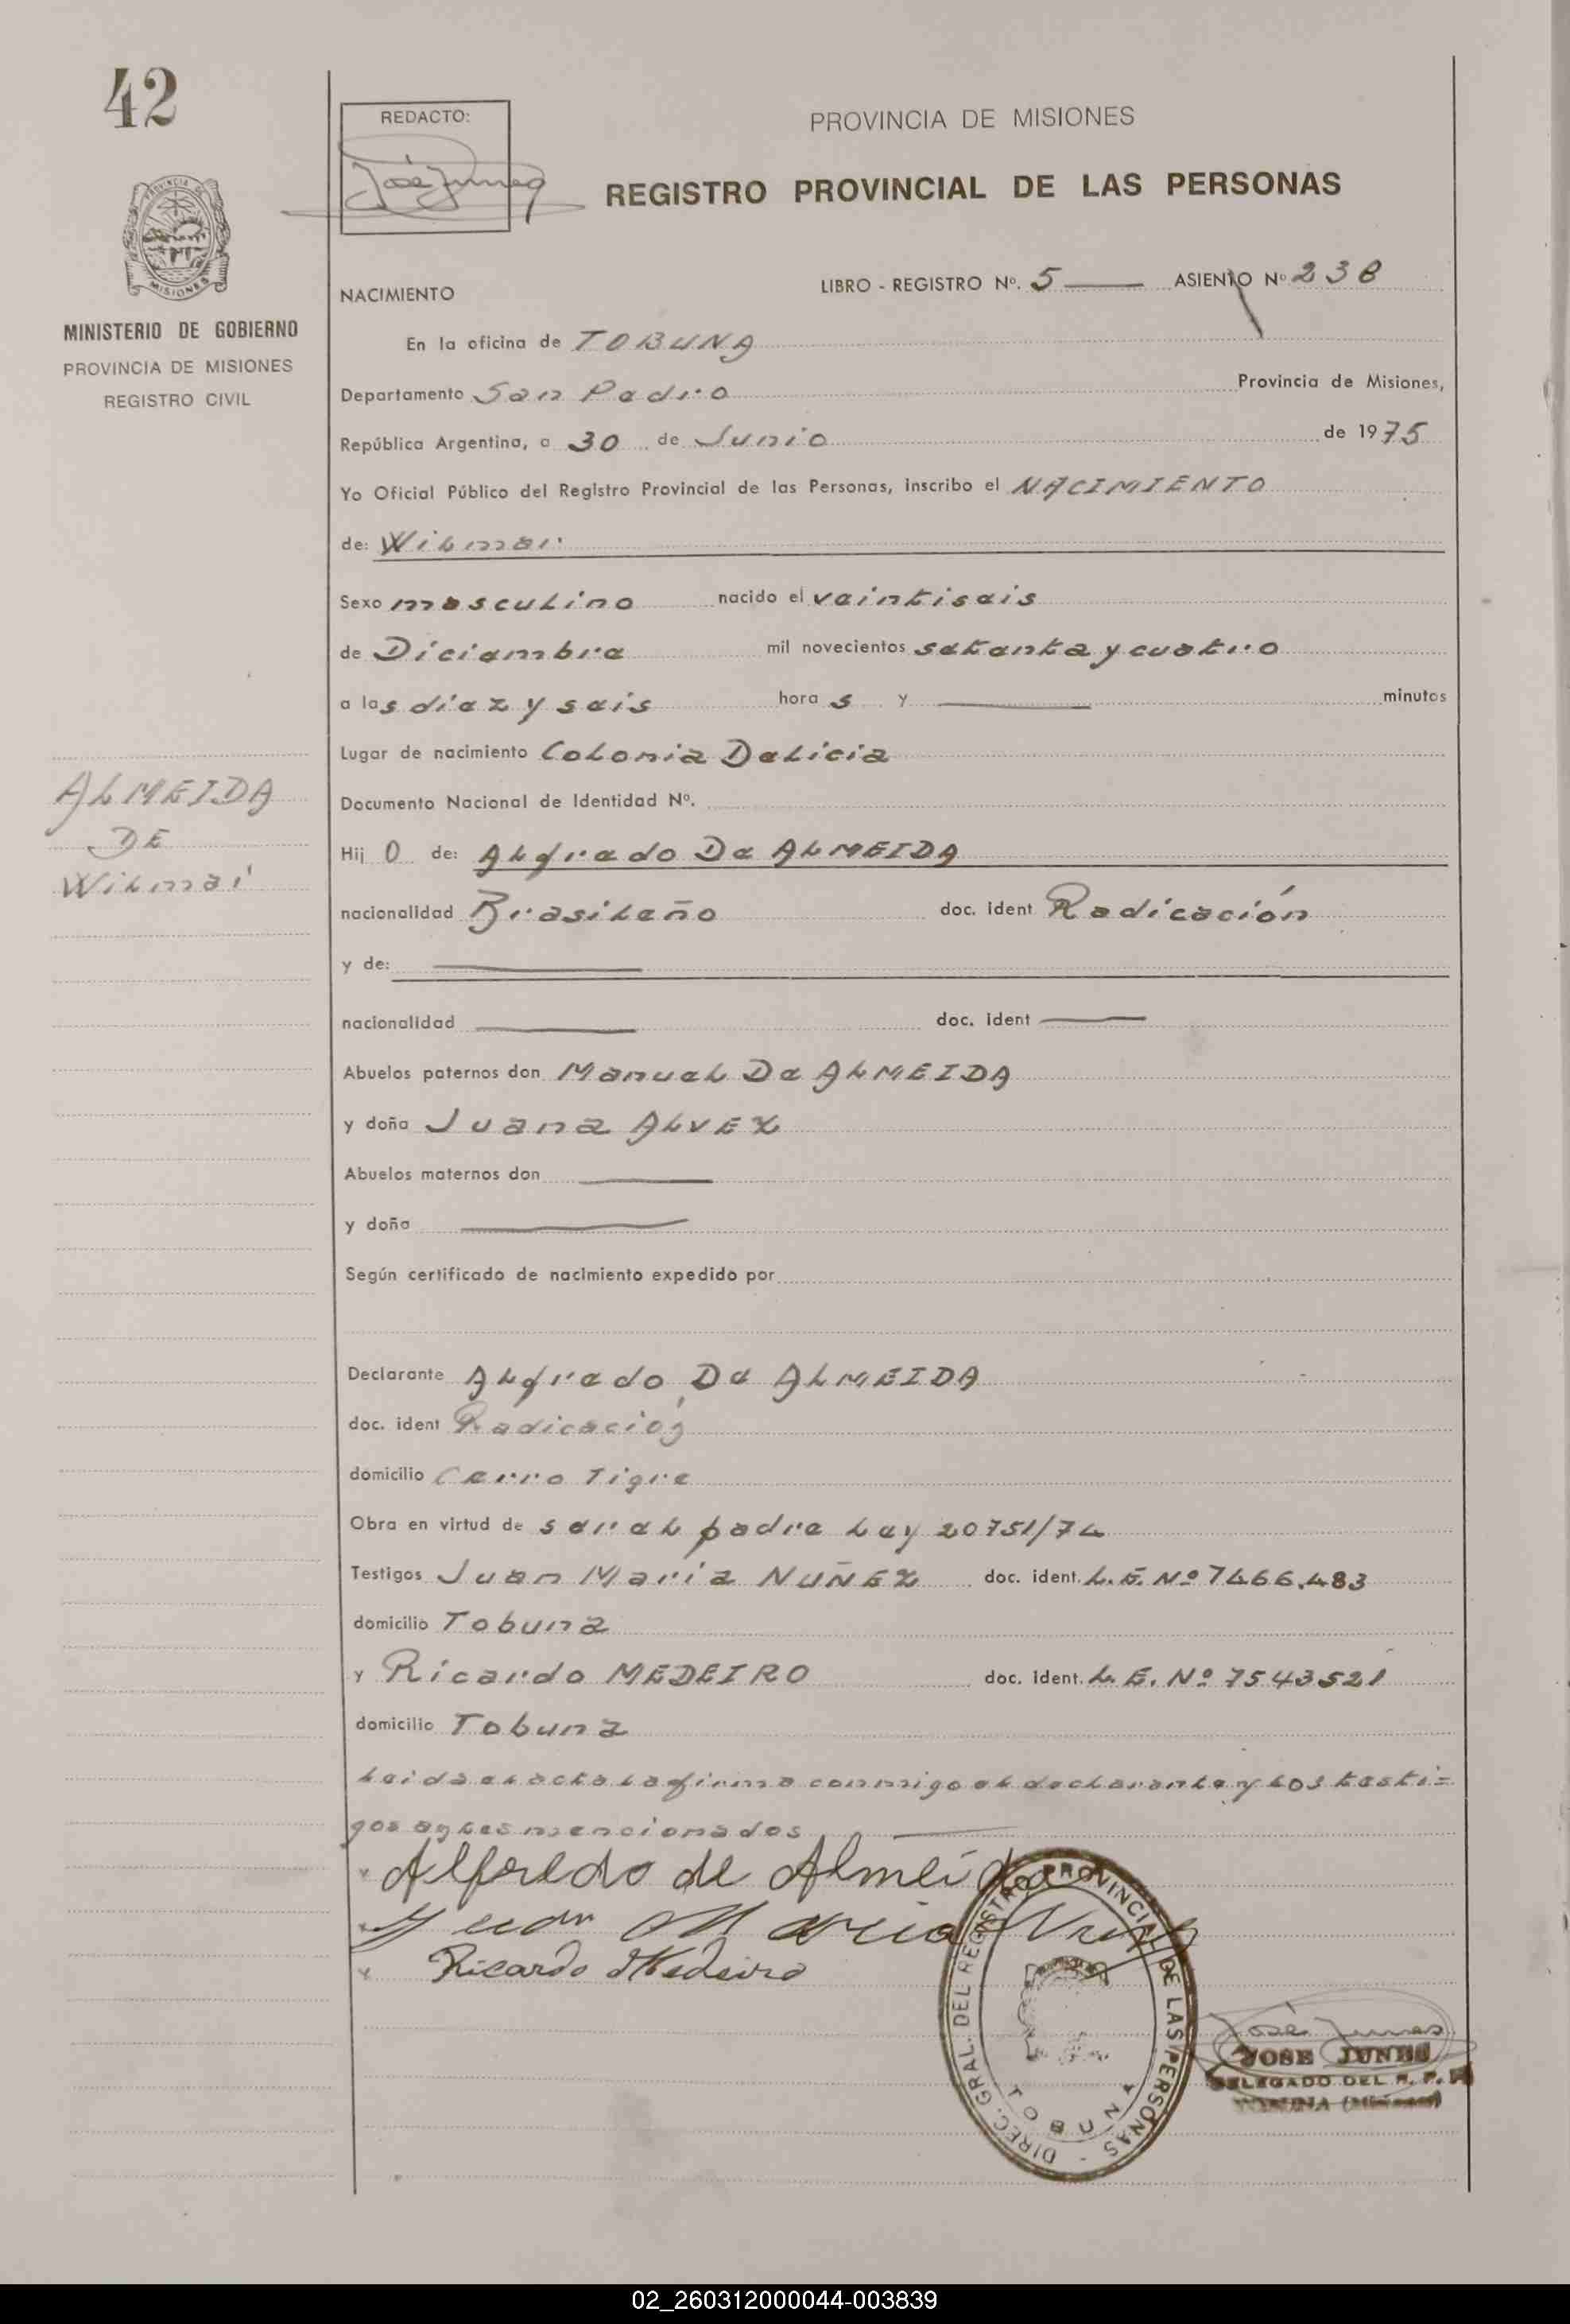 42
REDACTO:
José Junes
PROVINCIA DE MISIONES
REGISTRO PROVINCIAL DE LAS PERSONAS
PROVINCIA DE
MISIONES
MINISTERIO DE GOBIERNO
PROVINCIA DE MISIONES
REGISTRO CIVIL
NACIMIENTO
LIBRO - REGISTRO Nº. 5 ASIENTO Nº 238
En la oficina de TOBUNA
Departamento San Pedro Provincia de Misiones,
República Argentina, a 30 de Junio de 1975
Yo Oficial Público del Registro Provincial de las Personas, inscribo el NACIMIENTO
de: Wilmar
Sexo masculino nacido el veintiseis
de Diciembre mil novecientos setenta y cuatro
a las diez y seis hora s y minutos
Lugar de nacimiento Colonia Delicia
ALMEIDA
DE
Wilmar
Documento Nacional de Identidad Nº.
Hij O de: Alfredo De ALMEIDA
nacionalidad Brasileño doc. ident Radicación
y de:
nacionalidad doc. ident
Abuelos paternos don Manuel De ALMEIDA
y doña Juana ALVEZ
Abuelos maternos don
y doña
Según certificado de nacimiento expedido por
Declarante Alfredo De ALMEIDA
doc. ident Radicación
domicilio Cerro Tigre
Obra en virtud de ser el padre Ley 20751/74
Testigos Juan Maria NUÑEZ doc. ident. L.E. Nº 7466.483
domicilio Tobuna
y Ricardo MEDEIRO doc. ident. L.E. Nº 7543521
domicilio Tobuna
Leida el acta la firma conmigo el declarante y los testi=
gos antes mencionados
Alfredo de Almeida
Juan Maria Nuñez
Ricardo Medeiro
DIREC. GRAL. DEL REGISTRO PROVINCIAL DE LAS PERSONAS -
TOBUNA
José Junes
JOSE JUNES
DELEGADO DEL R. P. P.
TOBUNA (Misiones)
02_260312000044-003839